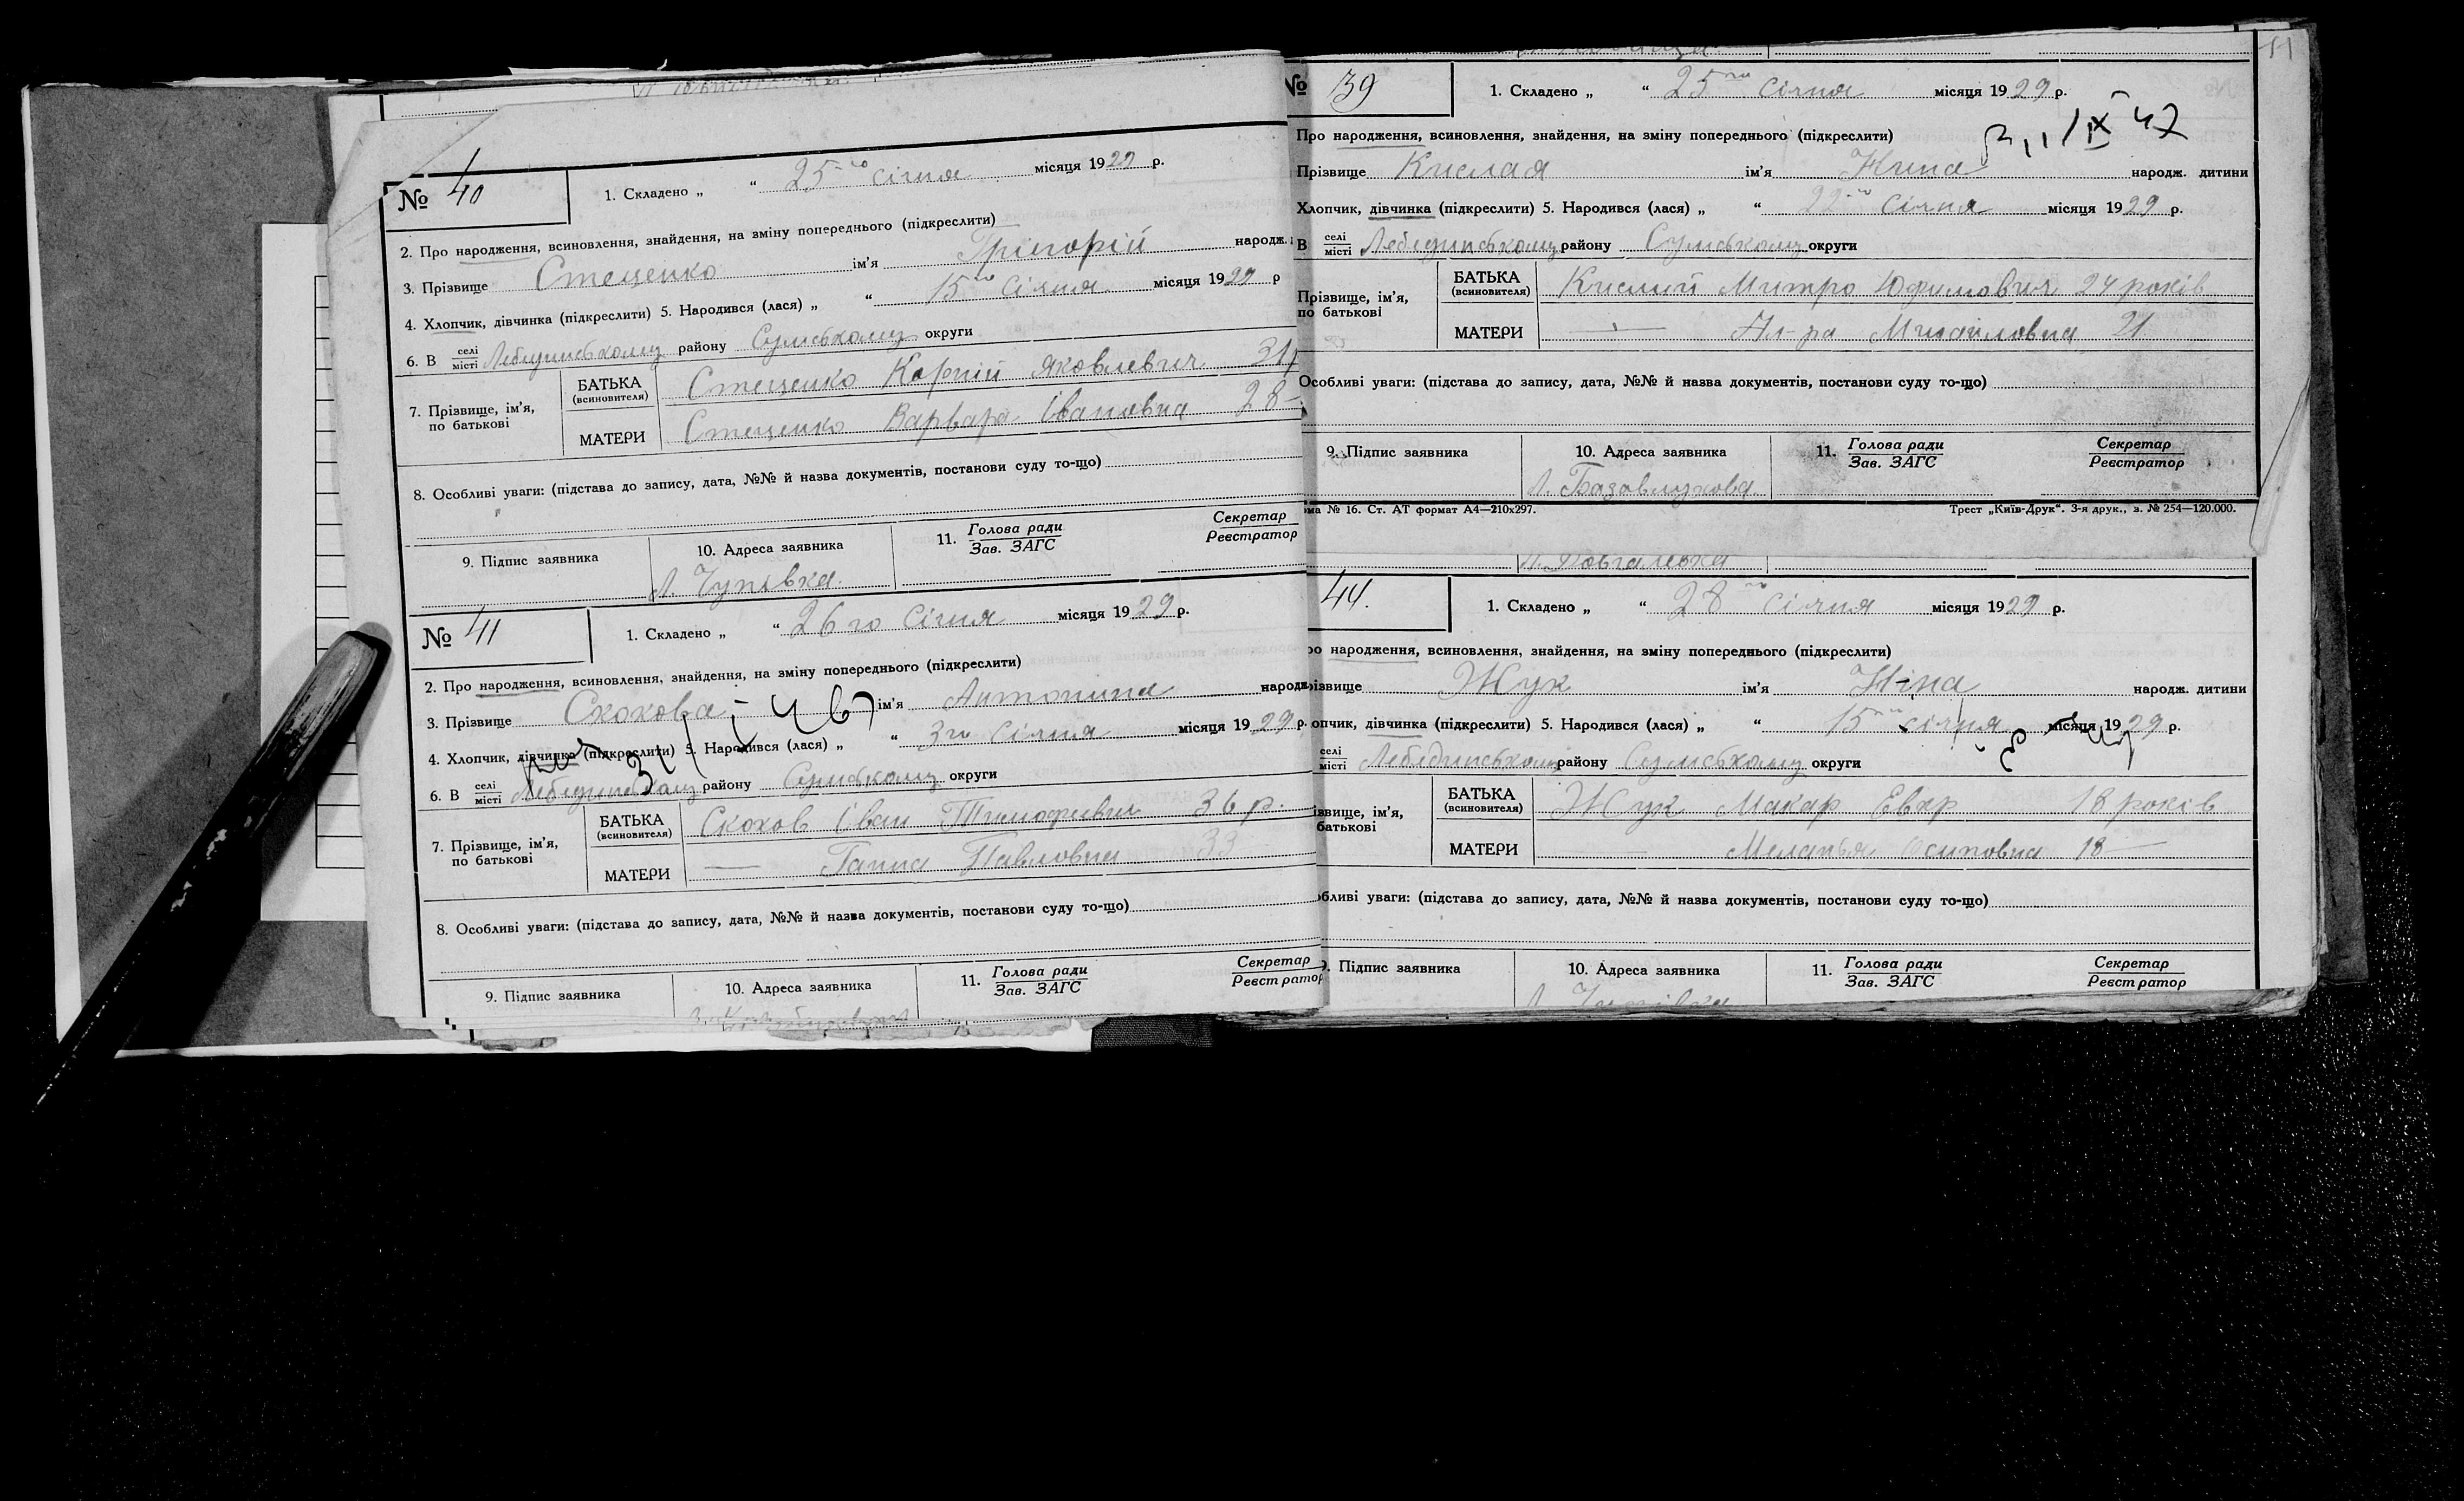 № 40
1. Складено „ “ 25го січня місяця 1929 р.
2. Про народження, всиновлення, знайдення, на зміну попереднього (підкреслити)
3. Прізвище Стеценко ім'я Григорій народж.
4. Хлопчик, дівчинка (підкреслити) 5. Народився (лася) „ “ 15го січня місяця 1929 р
6. В селі місті Лебединському району Сумському округи
7. Прізвище, ім'я, по батькові
БАТЬКА (всиновителя) Стеценко Корній Яковлевич 31
МАТЕРИ Стеценко Варвара Івановна 28
8. Особливі уваги: (підстава до запису, дата, №№ й назва документів, постанови суду то-що)
9. Підпис заявника
10. Адреса заявника
11. Голова ради Зав. ЗАГС
Секретар Реєстратор
№ 41
1. Складено „ “ 26го січня місяця 1929 р.
2. Про народження, всиновлення, знайдення, на зміну попереднього (підкреслити)
3. Прізвище Скокова ім'я Антонина народж
4. Хлопчик, дівчинка (підкреслити) 5. Народився (лася) „ “ 3го січня місяця 1929 р.
6. В селі місті Лебединському району Сумському округи
7. Прізвище, ім'я, по батькові
БАТЬКА (всиновителя) Скоков Іван Тимофеевич 36 р.
МАТЕРИ — Ганна Павловна 33
8. Особливі уваги: (підстава до запису, дата, №№ й назва документів, постанови суду то-що)
9. Підпис заявника
10. Адреса заявника
11. Голова ради Зав. ЗАГС
Секретар Реєстратор
51
№ 39
1. Складено „ “ 25го січня місяця 1929 р.
Про народження, всиновлення, знайдення, на зміну попереднього (підкреслити)
Прізвище Кислая ім'я Нина народж. дитини
Хлопчик, дівчинка (підкреслити) 5. Народився (лася) „ “ 22го січня місяця 1929 р.
В селі місті Лебединському району Сумському округи
Прізвище, ім'я, по батькові
БАТЬКА (всиновителя) Кислий Митро Юфимович 24 років
МАТЕРИ — Ал-ра Михайловна 21
Особливі уваги: (підстава до запису, дата, №№ й назва документів, постанови суду то-що)
9. Підпис заявника
10. Адреса заявника
11. Голова ради Зав. ЗАГС
Секретар Реєстратор
Л. Базавлукова
ма № 16. Ст. АТ формат А4—210х297.
Трест „Київ-Друк“. 3-я друк., з. № 254—120.000.
44.
1. Складено „ “ 28го січня місяця 1929 р.
ро народження, всиновлення, знайдення, на зміну попереднього (підкреслити)
різвище Жук ім'я Ніна народж. дитини
опчик, дівчинка (підкреслити) 5. Народився (лася) „ “ 15го січня місяця 1929 р.
селі місті Лебединському району Сумському округи
ізвище, ім'я, батькові
БАТЬКА (всиновителя) Жук Макар Евхр 18 років
МАТЕРИ — Меланья Осиповна 18 —
обливі уваги: (підстава до запису, дата, №№ й назва документів, постанови суду то-що)
9. Підпис заявника
10. Адреса заявника
11. Голова ради Зав. ЗАГС
Секретар Реєстратор